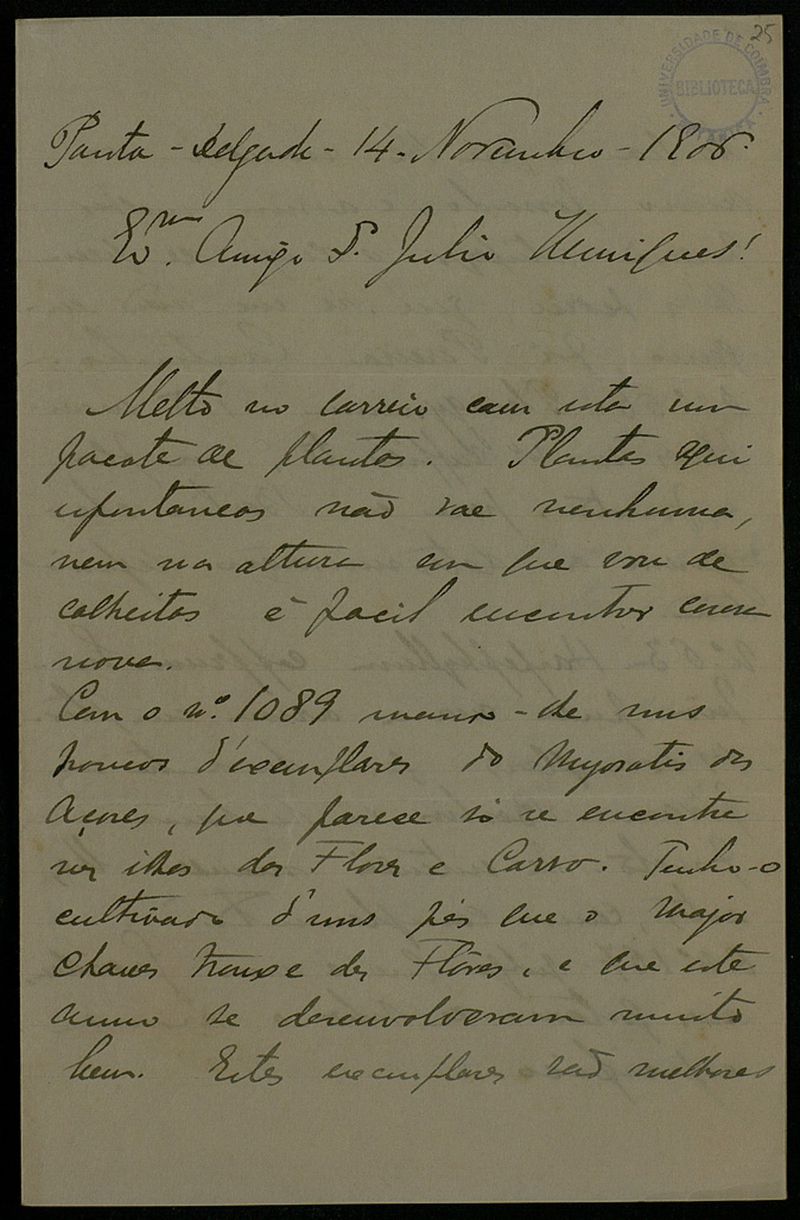 25
UNIVERSIDADE DE COIMBRA
BIBLIOTECA
Ponta-Delgada - 14 - Novembro - 1906.
Exmo. Amigo Dr. Julio Henriques!
Metto no correio com esta um
pacote de plantas. Plantas aqui
espontaneas não vae nenhuma,
nem na altura em que vou de
colheitas é facil encontrar cousa
nova.
Com o nº. 1089 mando-lhe uns
poucos d'exemplares do Myosotis dos
Açores, que parece só se encontra
nas ilhas das Flores e Corvo. Tenho-o
cultivado d'uns pés que o Major
Chaves trouxe das Flôres, e que este
anno se desenvolveram muito
bem. Estes exemplares são melhores